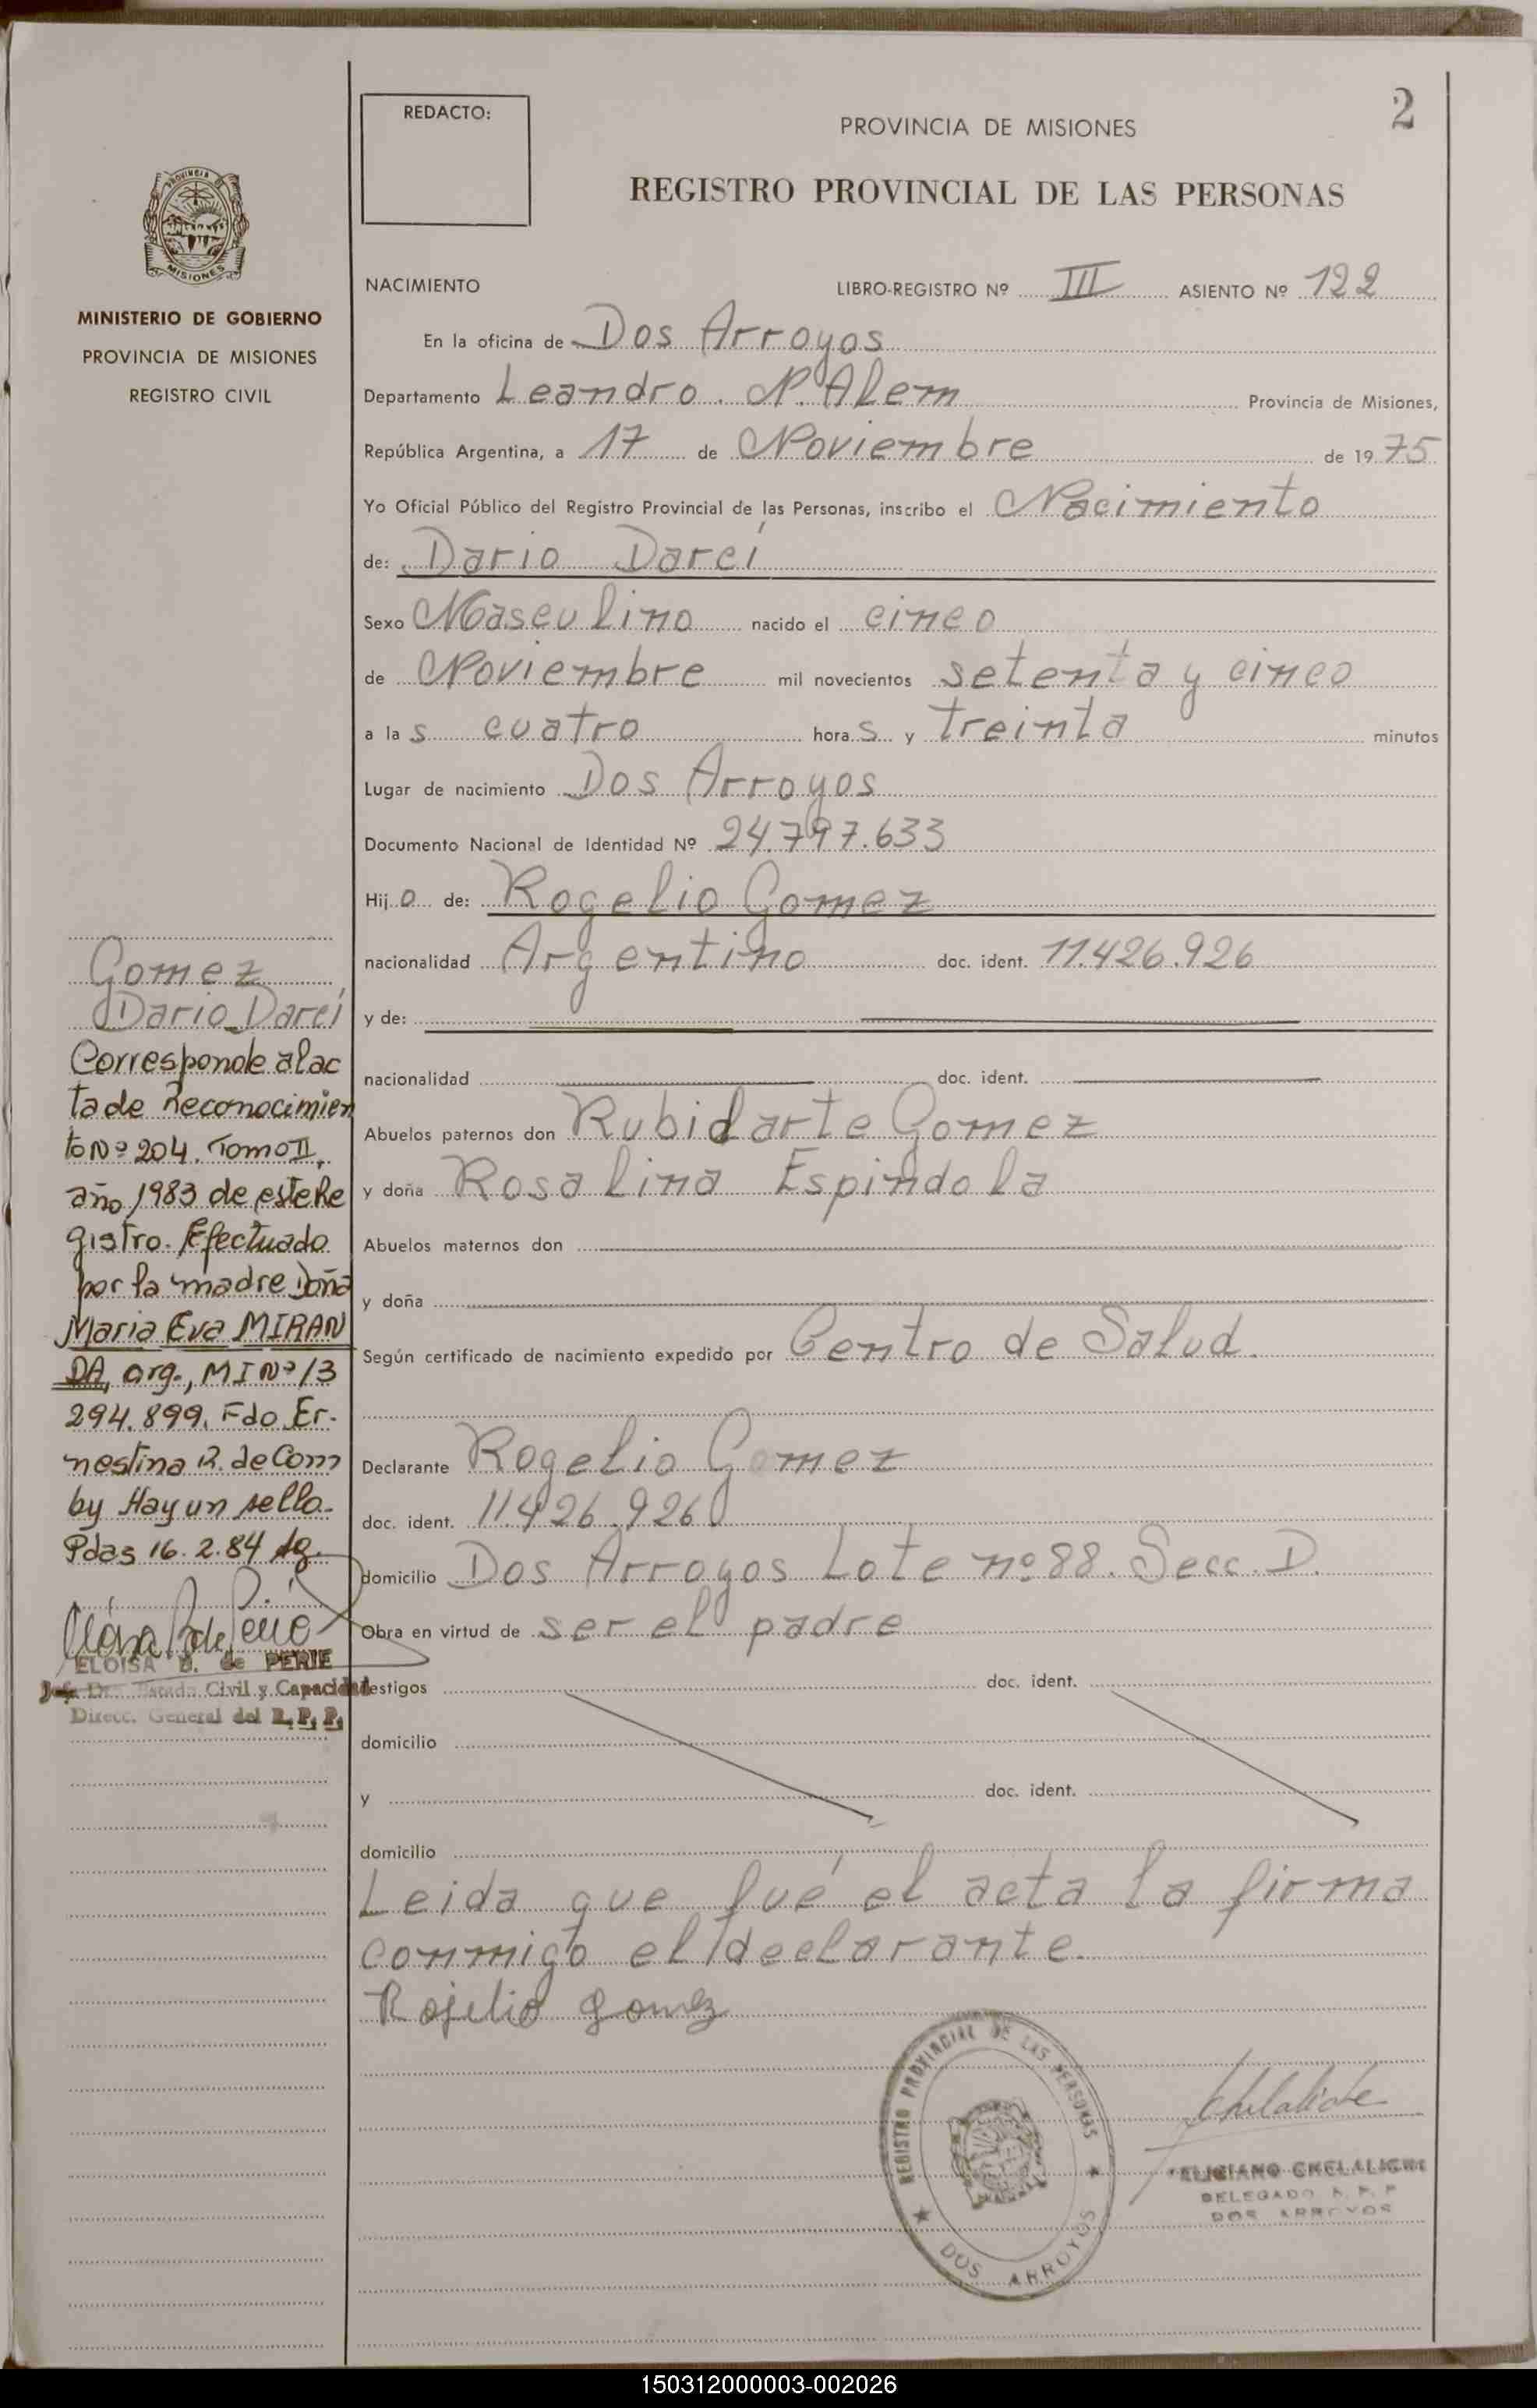 2
REDACTO:
PROVINCIA DE MISIONES
REGISTRO PROVINCIAL DE LAS PERSONAS
PROVINCIA
MISIONES
MINISTERIO DE GOBIERNO
PROVINCIA DE MISIONES
REGISTRO CIVIL
NACIMIENTO LIBRO-REGISTRO Nº III ASIENTO Nº 122
En la oficina de Dos Arroyos
Departamento Leandro. N. Alem Provincia de Misiones,
República Argentina, a 17 de Noviembre de 1975
Yo Oficial Público del Registro Provincial de las Personas, inscribo el Nacimiento
de: Dario Darci
Sexo Masculino nacido el cinco
de Noviembre mil novecientos setenta y cinco
a las cuatro horas y treinta minutos
Lugar de nacimiento Dos Arroyos
Documento Nacional de Identidad Nº 24.797.633
Hijo de: Rogelio Gomez
nacionalidad Argentino doc. ident. 11.426.926
y de:
nacionalidad doc. ident.
Abuelos paternos don Rubidarte Gomez
y doña Rosalina Espindola
Abuelos maternos don
y doña
Según certificado de nacimiento expedido por Centro de Salud.
Declarante Rogelio Gomez
doc. ident. 11.426.926
domicilio Dos Arroyos Lote nº 88. Secc. D.
Obra en virtud de ser el padre
Testigos doc. ident.
domicilio
y doc. ident.
domicilio
Leida que fué el acta la firma
conmigo el declarante.
Rojelio gomez
Gomez
Dario Darci
Corresponde al ac
ta de Reconocimien
to Nº 204. Tomo II,
año 1983 de este Re
gistro. Efectuado
por la madre Doña
Maria Eva MIRAN
DA, arg., MI Nº 13
294.899. Fdo. Er-
nestina R. de Com
by Hay un sello.
Pdas 16.2.84
ELOISA B. de PERIE
Jefe Dto. Estado Civil y Capacidad
Direcc. General del R. P. P.
REGISTRO PROVINCIAL DE LAS PERSONAS
DOS ARROYOS
FELICIANO CHELALICHE
DELEGADO R. P. P
DOS ARROYOS
150312000003-002026